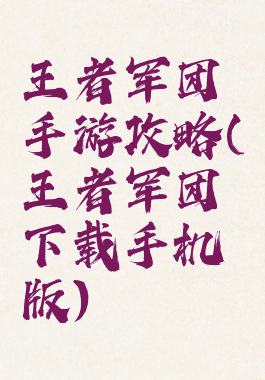 王者军团
手游攻略(
王者军团
下载手机
版)